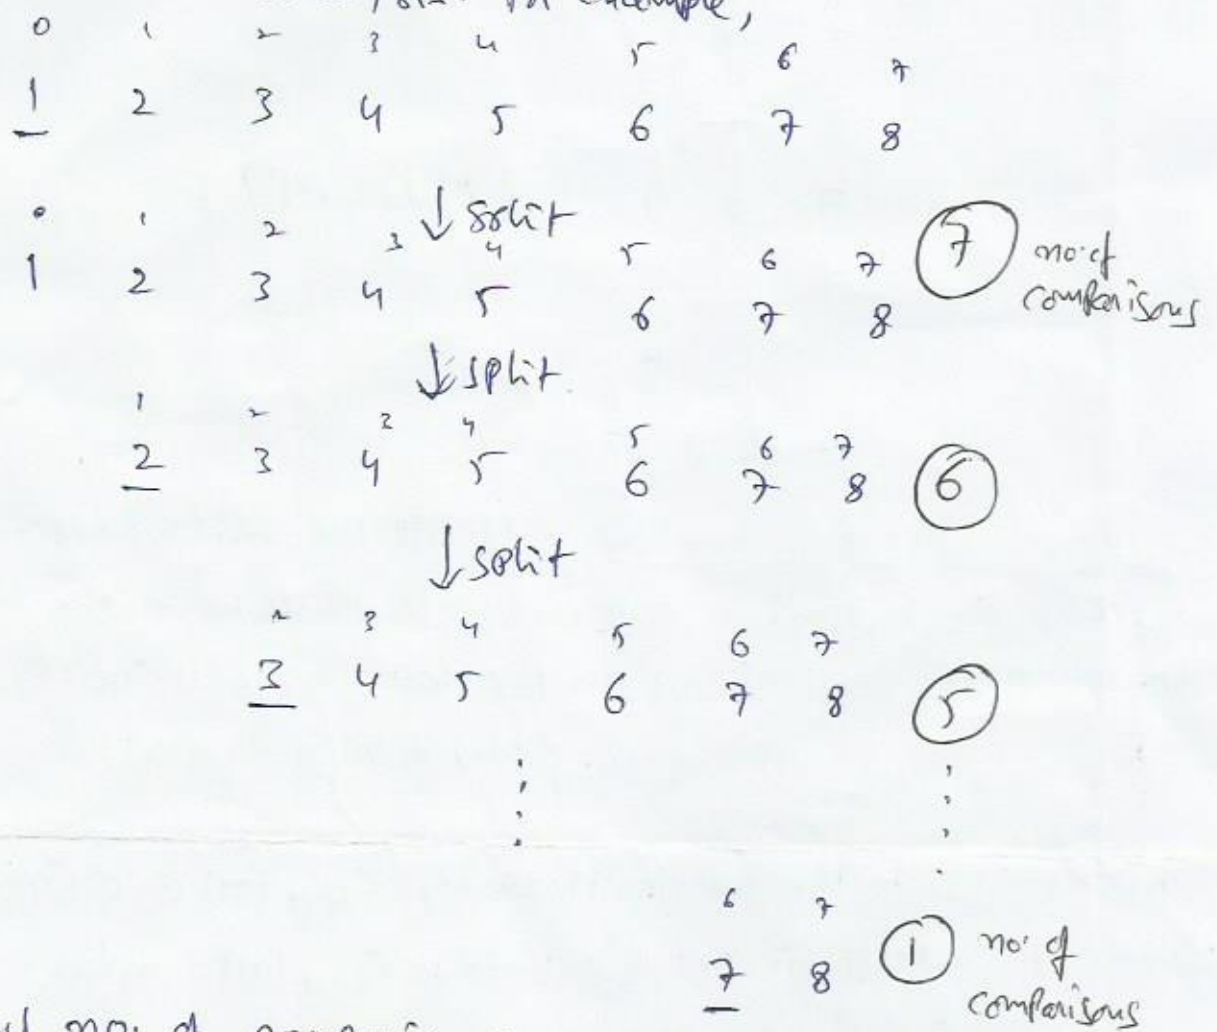 for example,
0 1 2 3 4 5 6 7
1 2 3 4 5 6 7 8
↓ split
0 1 2 3 4 5 6 7
1 2 3 4 5 6 7 8 7 no. of comparisons
↓ split
1 2 3 4 5 6 7
2 3 4 5 6 7 8 6
↓ split
2 3 4 5 6 7
3 4 5 6 7 8 5
6 7
7 8 1 no. of comparisons
no. of